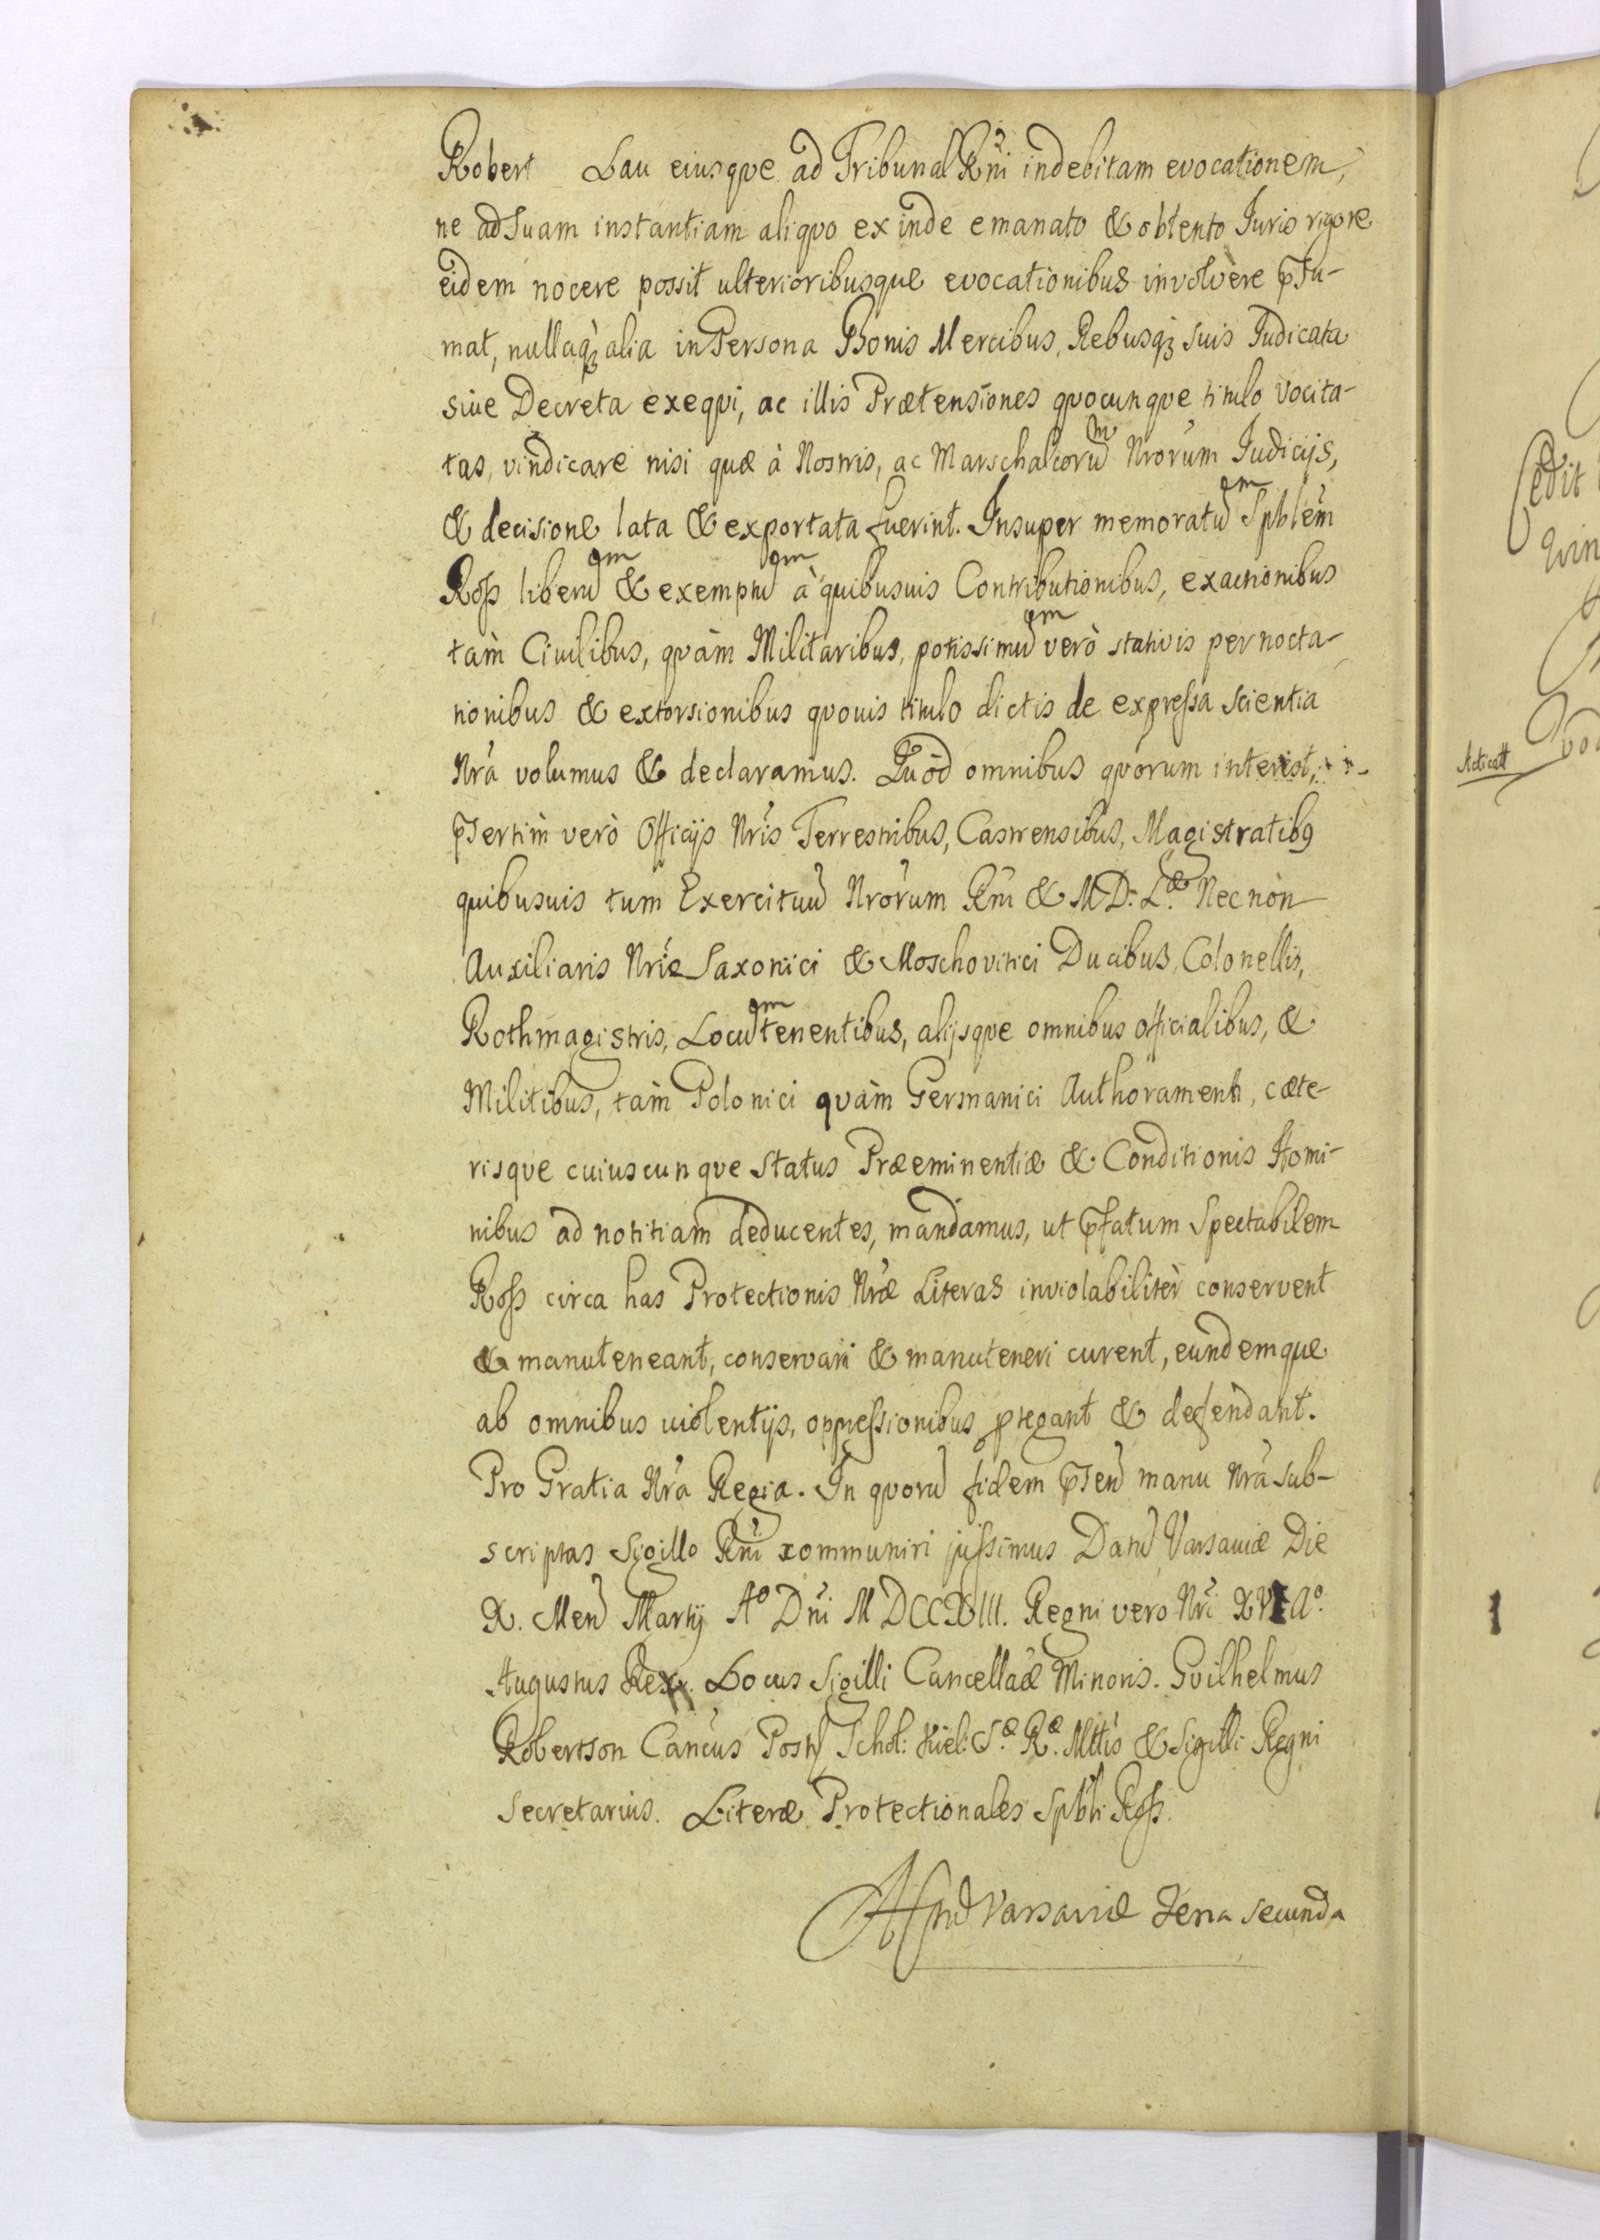 Robert Lau eiusqve ad Tribunal Rni indebitam evocationem,
ne ad Suam instantiam aliqvo exinde emanato & obtento Iuris rigore
eidem nocere possit ulterioribusque evocationibus involvere psu-
mat, nullaqȝ alia in Persona Bonis Mercibus, Rebusqȝ suis Iudicata
siue Decreta exeqvi, ac illis Prætensiones qvocunqve titulo vocita-
tas, vindicare nisi quæ à Nostris, ac Marschalcorum Nrorum Iudicijs,
& decisione lata & exportata fuerint. Insuper memoratum Spblem
Ross liberum & exemptum à quibusuis Contributionibus, exactionibus
tàm Ciuilibus, qvàm Militaribus, potissimum verò stativis pernocta-
tionibus & extorsionibus qvouis titulo dictis de expressa scientia
Nra volumus & declaramus. Quòd omnibus qvorum interest,
psertim verò Officijs Nris Terrestribus, Castrensibus, Magistratibꝰ
quibusuis tum Exercituu Nrorum Rni & M D: L.æ Nec non
Auxiliaris Nri Saxonici & Moschovitici Ducibus, Colonellis,
Rothmagistris, Locumtenentibus, alijsqve omnibus officialibus, &
Militibus, tàm Polonici qvàm Germanici Authoramenti, cæte-
risqve cuiuscunqve Status Præeminentiæ & Conditionis Homi-
nibus ad notitiam deducentes, mandamus, ut pfatum Spectabilem
Ross circa has Protectionis Nræ Literas inviolabilitèr conservent
& manuteneant, conservari & manuteneri curent, eundemque
ab omnibus uiolentijs, oppressionibus ptegant & defendant.
Pro Gratia Nra Regia. In qvoru fidem psen manu Nra sub-
scriptas Sigillo Rni communiri jussimus Datu Varsauiæ Die
X. Men Martij Aº Dni MDCCXIII. Regni vero Nri XVI Aº.
Augustus Rex. Locus Sigilli Cancellaæ Minoris. Gvilhelmus
Robertson Cancus Schol: Kiel: S.æ R.æ Mttis & Sigilli Regni
Secretarius. Literæ Protectionales Spbli Ross.
Varsaviæ Feria Secunda
Acticatt